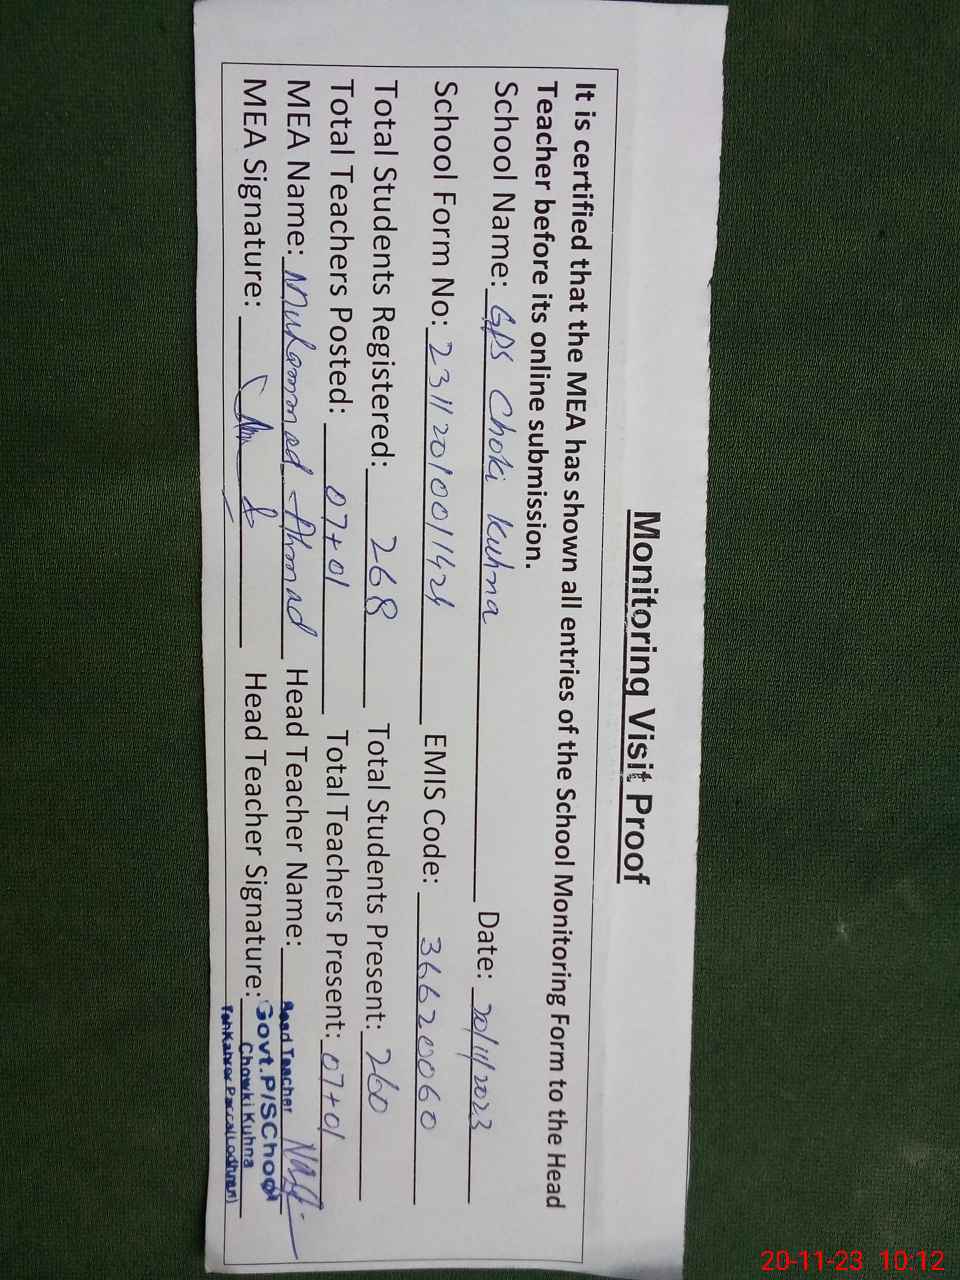 Monitoring Visit Proof
It is certified that the MEA has shown all entries of the School Monitoring Form to the Head
Teacher before its online submission.
School Name: GPS Choki Kuhna Date: 20/11/2023
School Form No: 23112010011424 EMIS Code: 36620060
Total Students Registered: 268 Total Students Present: 260
Total Teachers Posted: 07+01 Total Teachers Present: 07+01
MEA Name: Muhammad Ahmad Head Teacher Name:
MEA Signature: Head Teacher Signature:
Head Teacher
Govt. P/SChool
Chowki Kuhna
Teh Kahror Pacca (Lodhran)
20-11-23 10:12